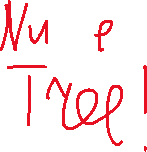 Nu e
Tree!